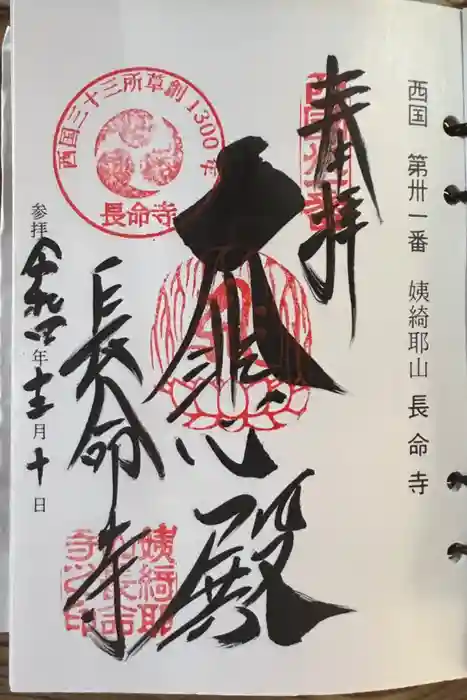 西国 第卅一番 姨綺耶山 長命寺
奉拝
大悲殿
長命寺
参拝 令和四年十一月十日
西国三十三所草創1300年
長命寺
西国卅一番
姨綺耶山長命寺之印